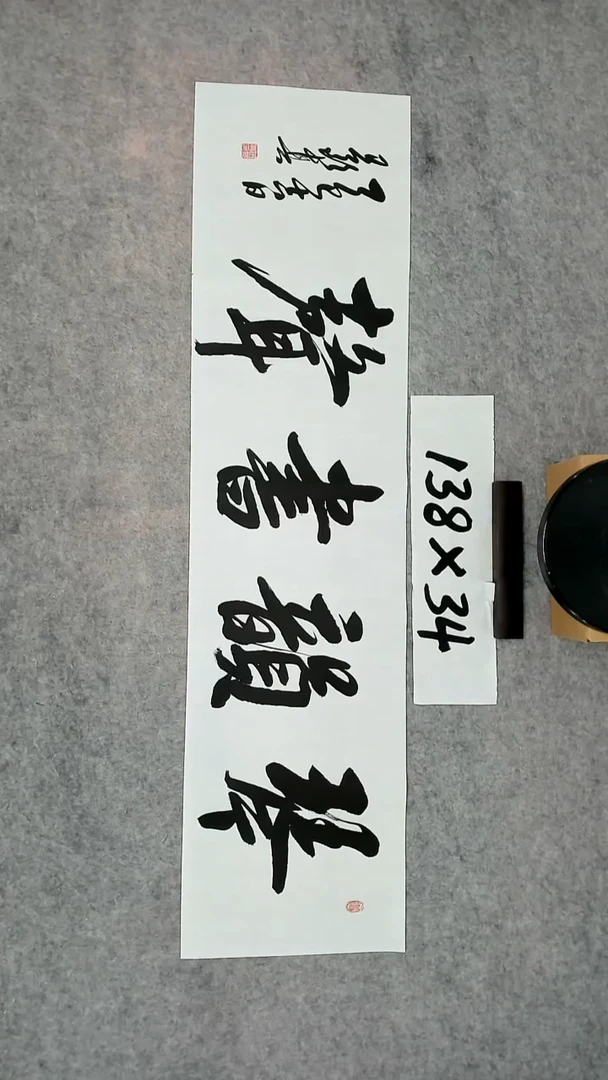 琴韻書聲
138×34